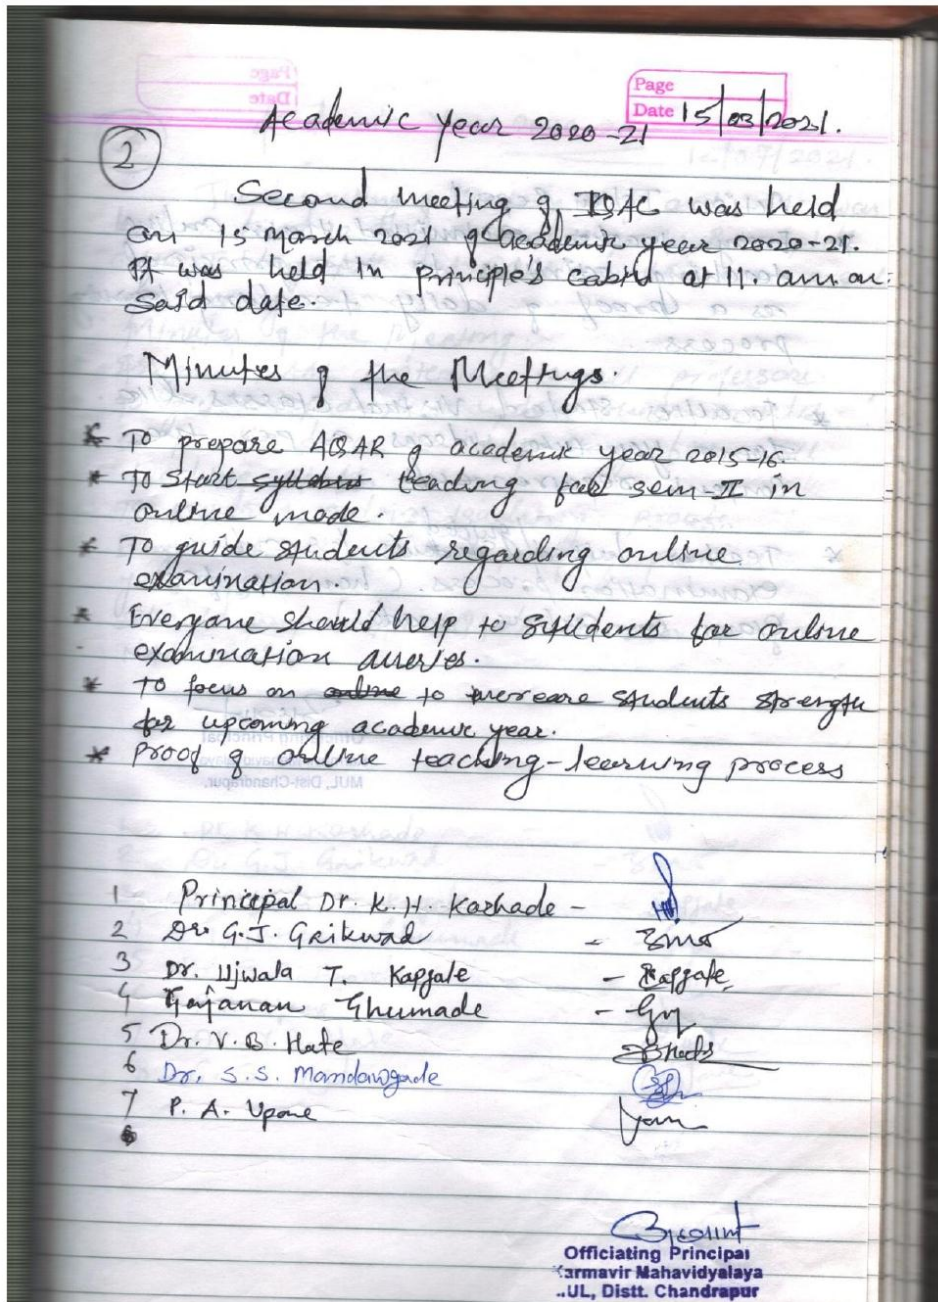 Page
Date 15/03/2021.
Academic year 2020-21
2
Second meeting of IQAC was held
on 15 March 2021 of academic year 2020-21.
It was held in principle's cabin at 11. am. on
said date.
Minutes of the Meetings.
* To prepare AQAR of academic year 2015-16.
* To start syllabus teaching for sem-II in
online mode.
* To guide students regarding online
examination
* Everyone should help to students for online
examination queries.
* To focus on online to increase students strength
for upcoming academic year.
* Proof of online teaching-learning process
1 Principal Dr. K. H. Karhade -
2 Dr. G.J. Gaikwad -
3 Dr. Ujwala T. Kapgate - Kapgate
4 Gajanan Ghumade -
5 Dr. V.B. Hate
6 Dr. S.S. Mandawgade
7 P. A. Upone
8
Officiating Principal
Karmavir Mahavidyalaya
MUL, Distt. Chandrapur